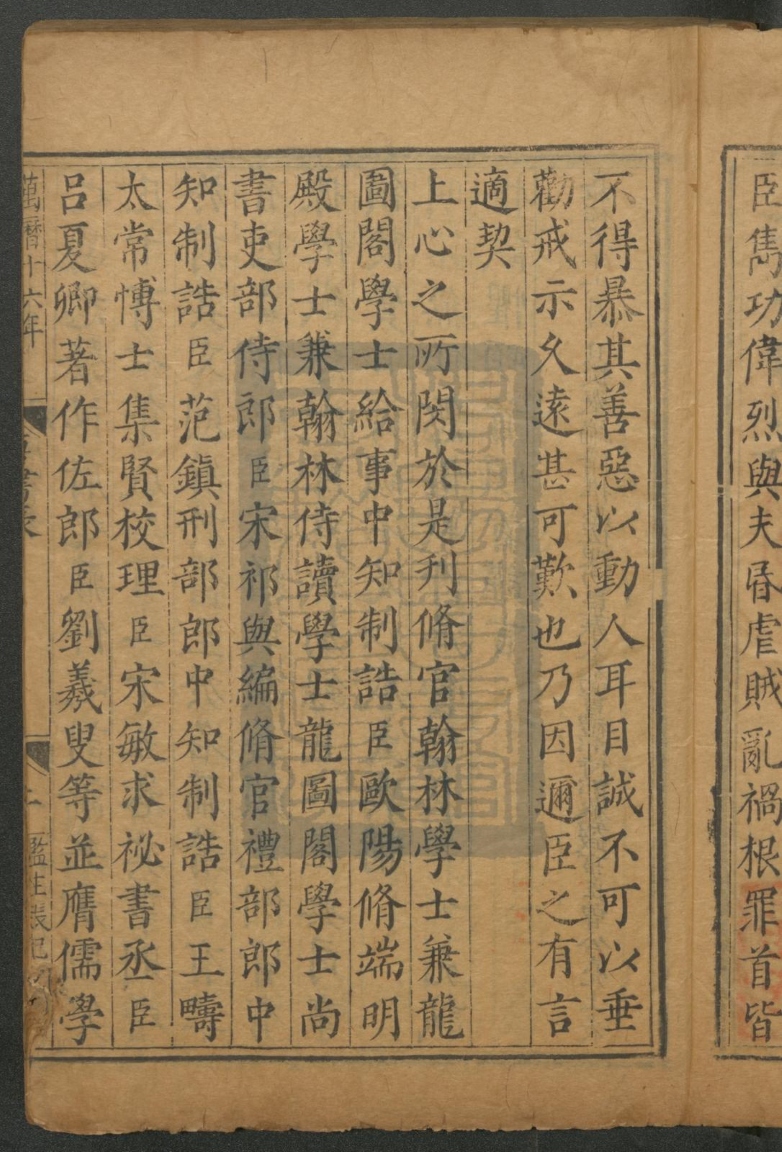 臣雋功偉烈與夫昬虐賊亂禍根罪首皆
不得暴其善惡以動人耳目誠不可以垂
勸戒示久遠甚可歎也乃因邇臣之有言
適契
上心之所閔於是刋脩官翰林學士兼龍
圖閣學士給事中知制誥臣歐陽脩端明
殿學士兼翰林侍讀學士龍圖閣學士尚
書吏部侍郎臣宋祁與編脩官禮部郎中
知制誥臣范鎮刑部郎中知制誥臣王疇
太常博士集賢校理臣宋敏求祕書丞臣
呂夏卿著作佐郎臣劉羲叟等並膺儒學
萬曆十六年
書表
監生